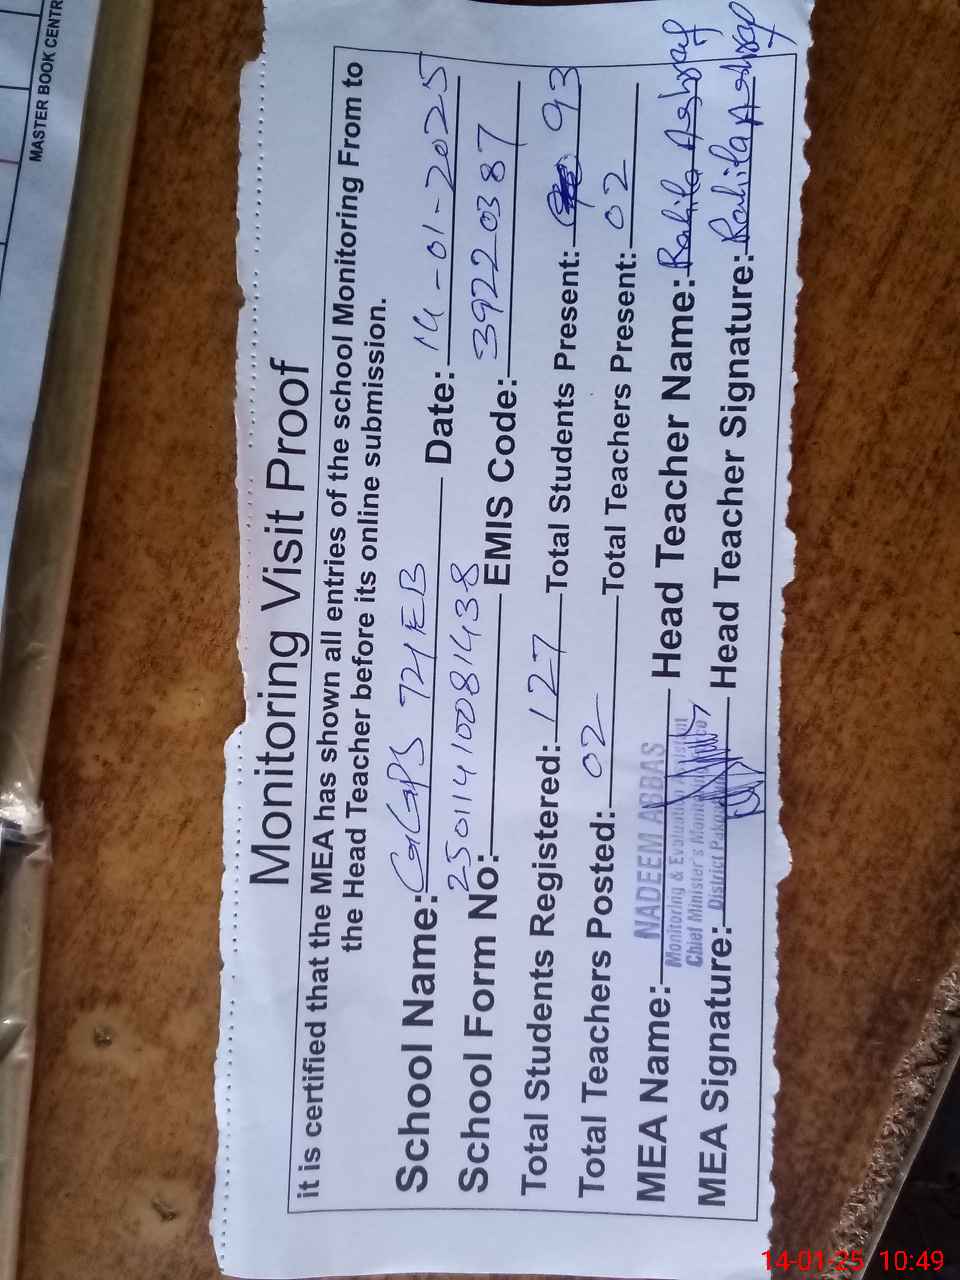 MASTER BOOK CENTR
Monitoring Visit Proof
it is certified that the MEA has shown all entries of the school Monitoring From to
the Head Teacher before its online submission.
School Name: GGPS 721EB Date: 14-01-2025
School Form No: 25011410081438 EMIS Code: 39220387
Total Students Registered: 127 Total Students Present: 93
Total Teachers Posted: 02 Total Teachers Present: 02
MEA Name: NADEEM ABBAS Head Teacher Name: Rahila Ashraf
Monitoring & Evaluation Assistant
Chief Minister's Monitoring
MEA Signature: District Pakpattan Head Teacher Signature: Rahila Ashraf
14-01-25 10:49